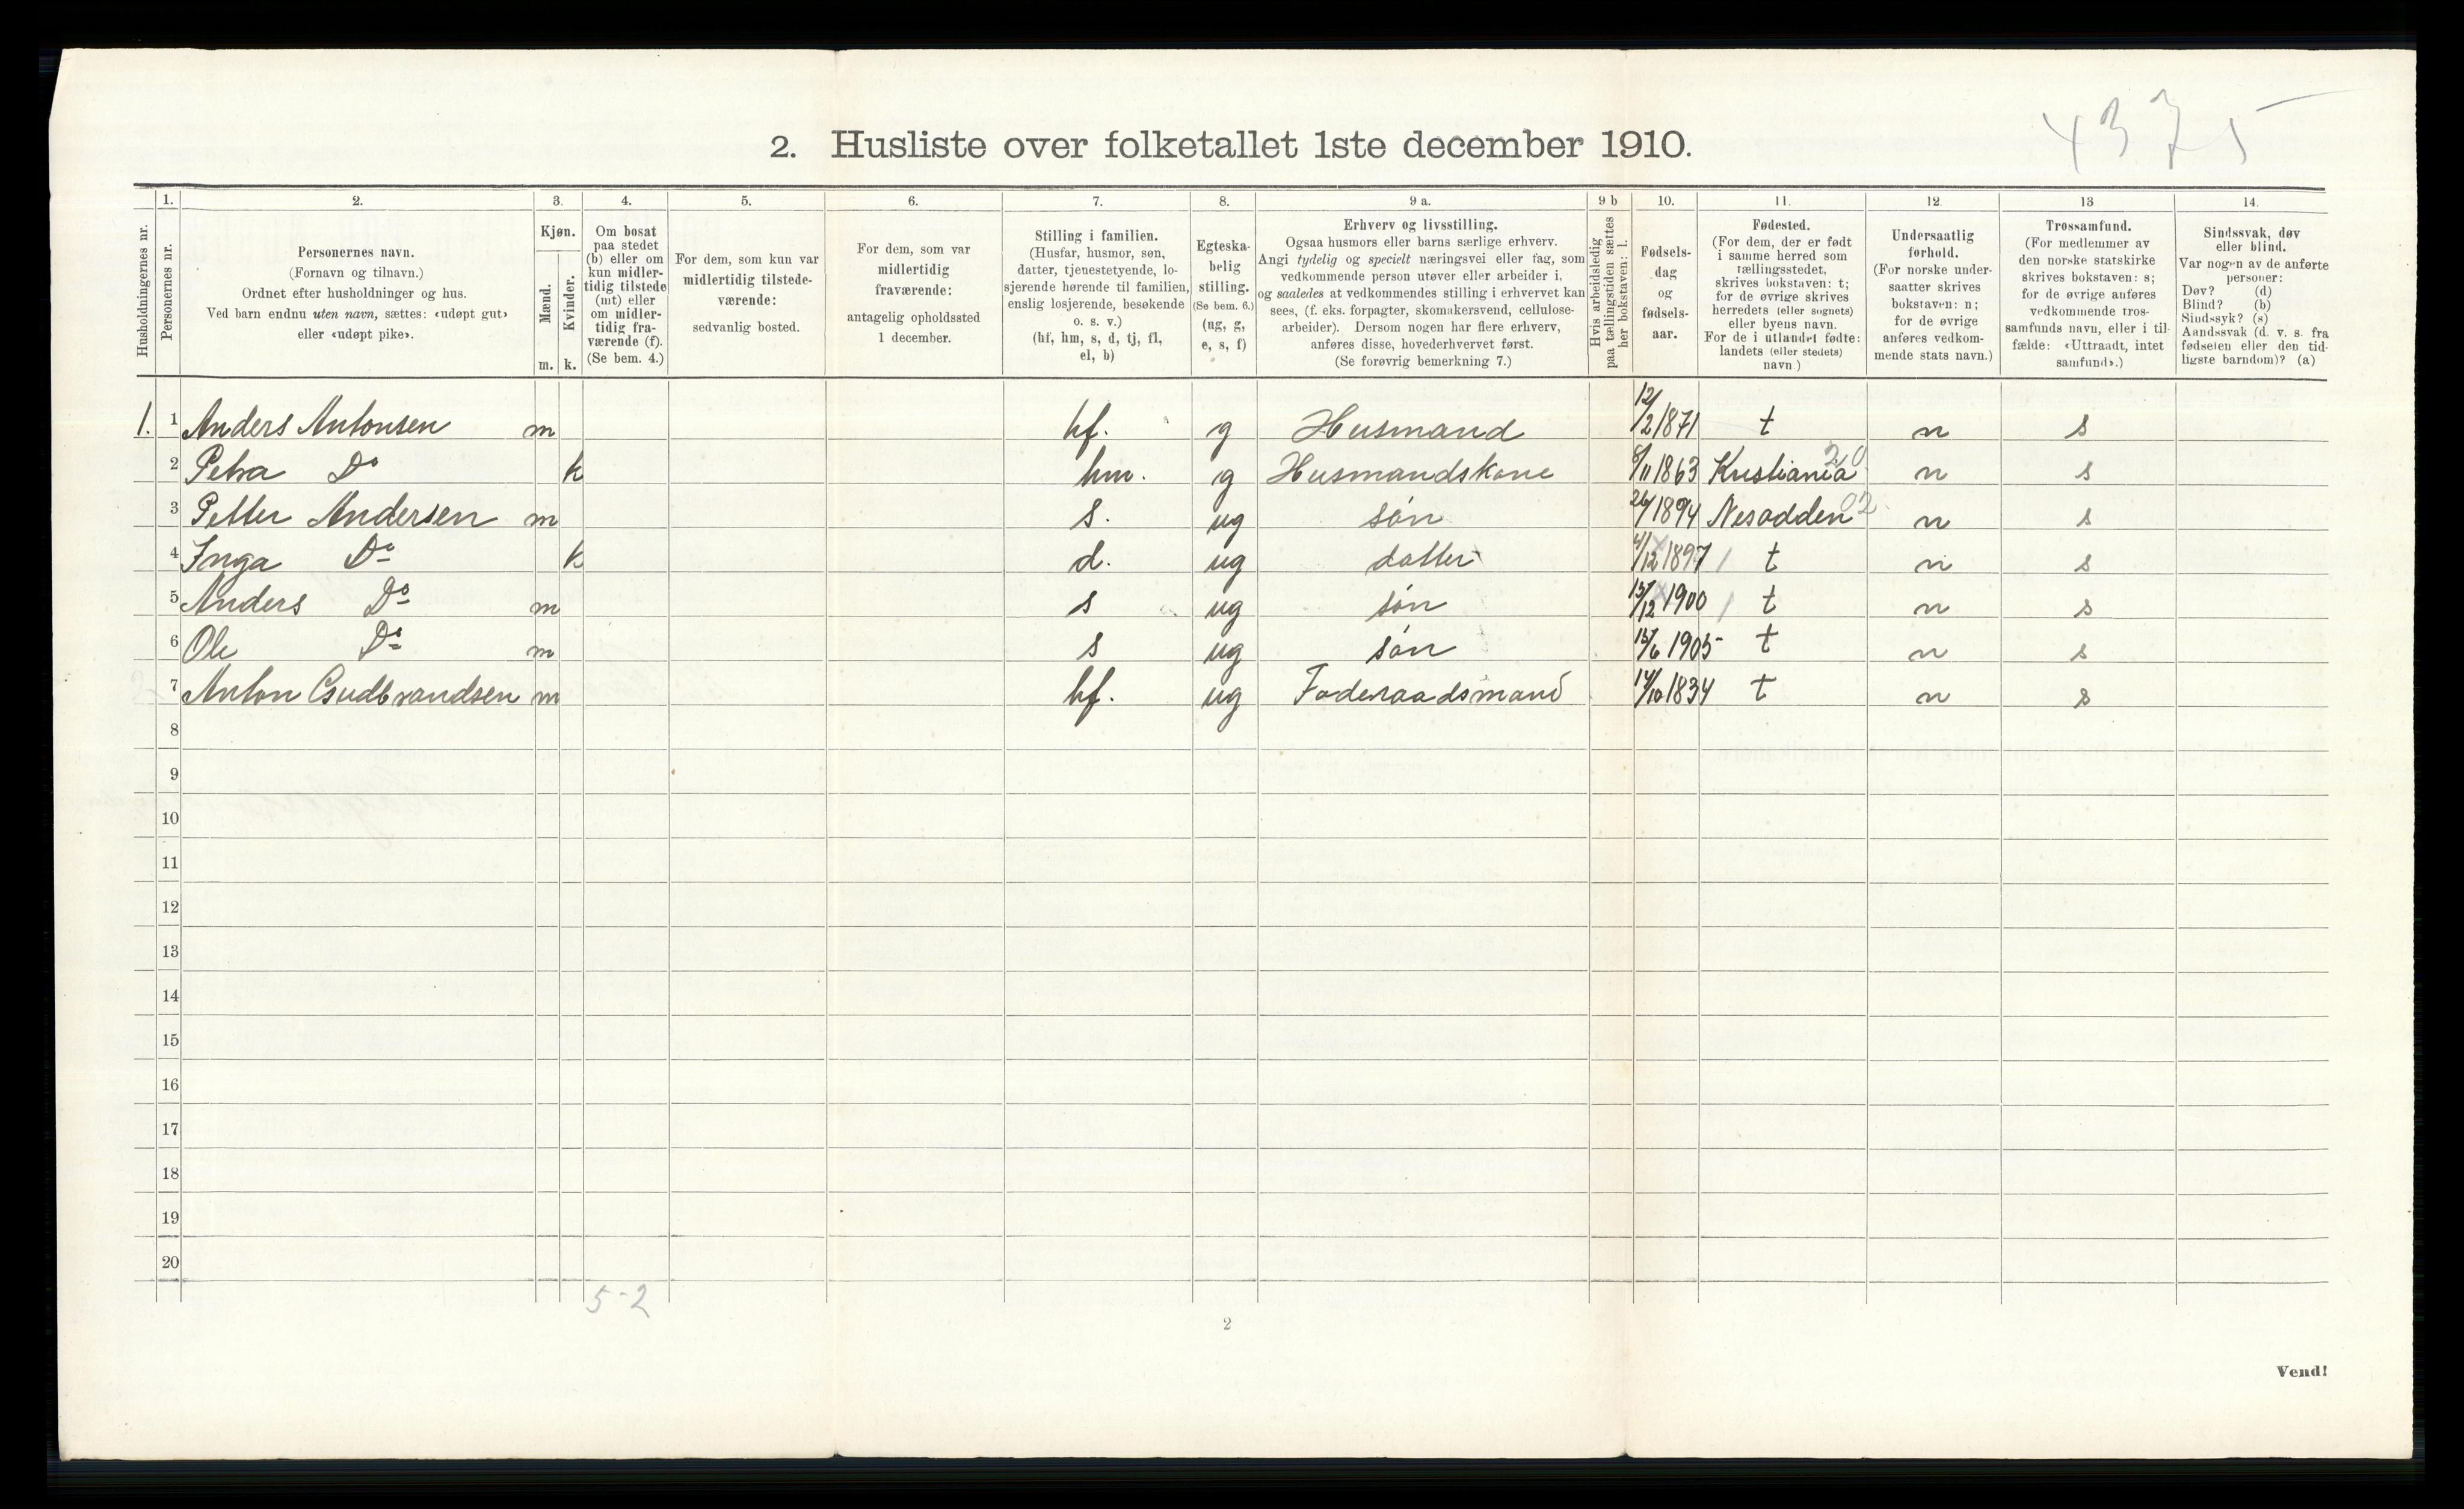 4375
2. Husliste over folketallet 1ste december 1910.
Husholdningernes nr.
1.
Personernes nr.
2.
Personernes navn.
(Fornavn og tilnavn.)
Ordnet efter husholdninger og hus.
Ved barn endnu uten navn, sættes: «udøpt gut»
eller «udøpt pike».
3.
Kjøn.
Mænd.
Kvinder.
m. k.
4.
Om bosat
paa stedet
(b) eller om
kun midler-
tidig tilstede
(mt) eller
om midler-
tidig fra-
værende (f).
(Se bem. 4.)
5.
For dem, som kun var
midlertidig tilstede-
værende:
sedvanlig bosted.
6.
For dem, som var
midlertidig
fraværende:
antagelig opholdssted
1 december.
7.
Stilling i familien.
(Husfar, husmor, søn,
datter, tjenestetyende, lo-
sjerende hørende til familien,
enslig losjerende, besøkende
o. s. v.)
(hf, hm, s, d, tj, fl,
el, b)
8.
Egteska-
belig
stilling.
(Se bem. 6.)
(ug, g,
e, s, f)
9 a.
Erhverv og livsstilling.
Ogsaa husmors eller barns særlige erhverv.
Angi tydelig og specielt næringsvei eller fag, som
vedkommende person utøver eller arbeider i,
og saaledes at vedkommendes stilling i erhvervet kan
sees, (f. eks. forpagter, skomakersvend, cellulose-
arbeider). Dersom nogen har flere erhverv,
anføres disse, hovederhvervet først.
(Se forøvrig bemerkning 7.)
9 b
Hvis arbeidsledig
paa tællingstiden sættes
her bokstaven: l.
10.
Fødsels-
dag
og
fødsels-
aar.
11.
Fødested.
(For dem, der er født
i samme herred som
tællingsstedet,
skrives bokstaven: t;
for de øvrige skrives
herredets (eller sognets)
eller byens navn.
For de i utlandet fødte:
landets (eller stedets)
navn.)
12.
Undersaatlig
forhold.
(For norske under-
saatter skrives
bokstaven: n;
for de øvrige
anføres vedkom-
mende stats navn.)
13
Trossamfund.
(For medlemmer av
den norske statskirke
skrives bokstaven: s;
for de øvrige anføres
vedkommende tros-
samfunds navn, eller i til-
fælde: «Uttraadt, intet
samfund».)
14.
Sindssvak, døv
eller blind.
Var nogen av de anførte
personer:
Døv? (d)
Blind? (b)
Sindssyk? (s)
Aandssvak (d. v. s. fra
fødselen eller den tid-
ligste barndom)? (a)
1. 1 Anders Antonsen m hf. g Husmand 12/2 1871 t n s
2 Petra Do k hm. g Husmandskone 8/11 1863 Kristiania 20 n s
3 Petter Andersen m s. ug søn 1894 Nesodden 02 n s
4 Inga Do k d. ug datter 4/12 1897 t n s
5 Anders Do m s ug søn 15/12 1900 t n s
6 Ole Do m s ug søn 15/6 1905 t n s
7 Anton Gudbrandsen m hf. ug Føderaadsmand 14/10 1834 t n s
8
9
10
11
12
13
14
15
16
17
18
19
20
5-2
2
Vend!